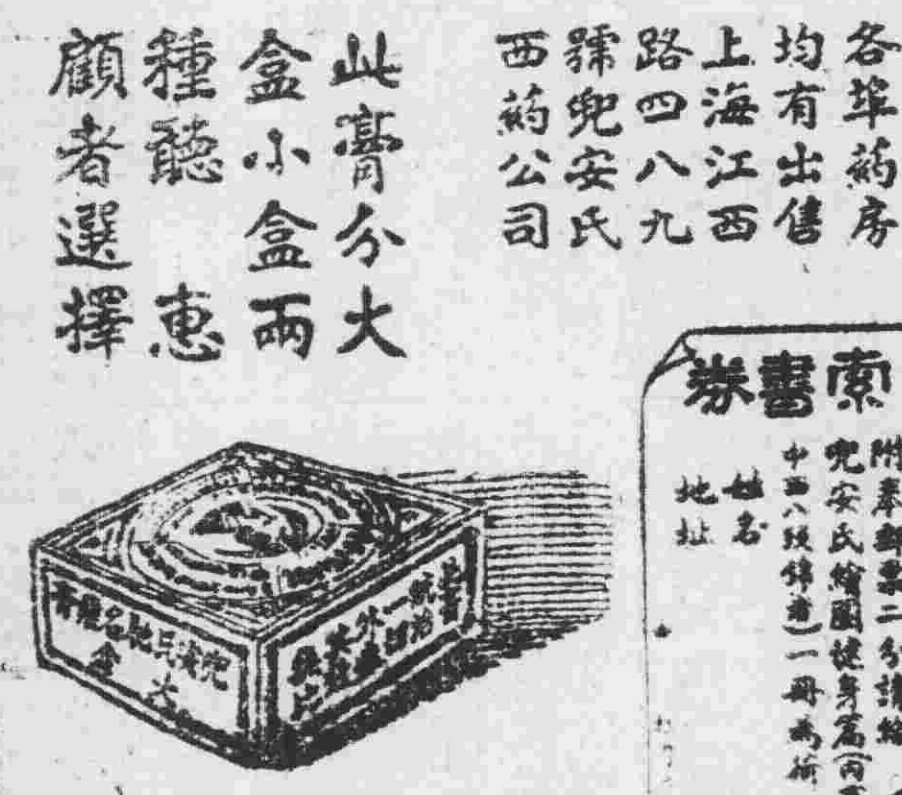 各埠葯房
均有出售
上海江西
路四八九
號兜安氏
西葯公司
此膏分大
盒小盒兩
種聽 惠
顧者選擇
索書券
附奉郵票二分請給
兜安氏繪圖健身篇(內
中西八段錦者)一冊為荷
姓名
地址
兜安氏馳名
大盒